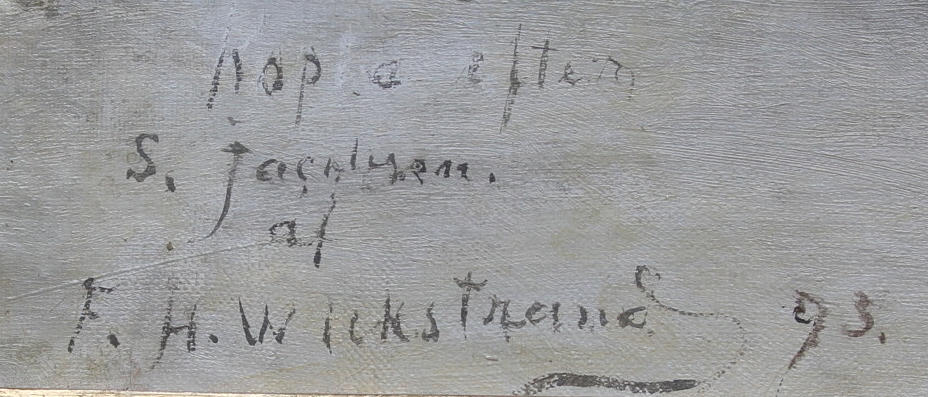 Kopia efter
S. Jacobsen.
af
F. H. Wickstrand 93.